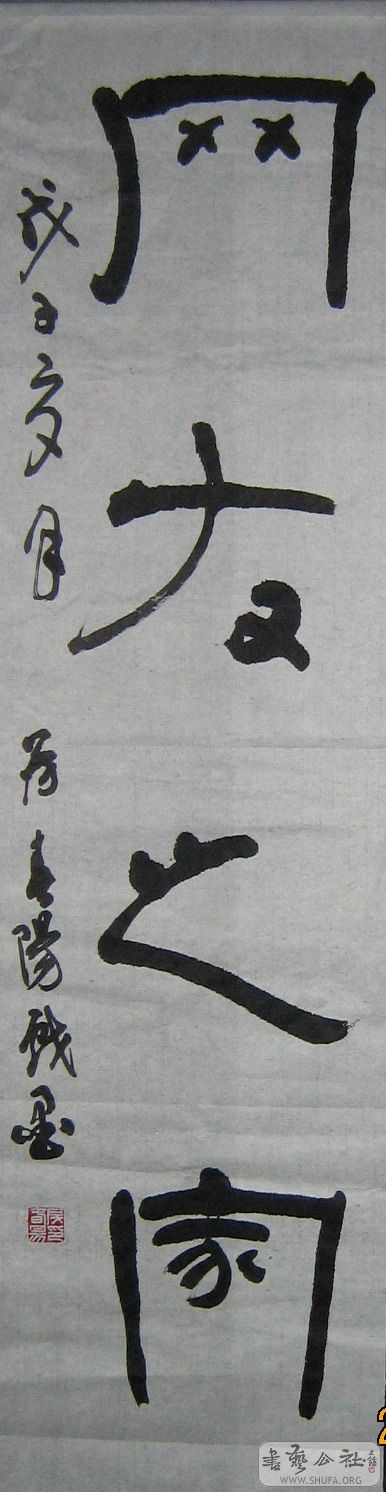 网友之家
戊子夏月
春阳戏墨
书艺公社
WWW.SHUFA.ORG
2